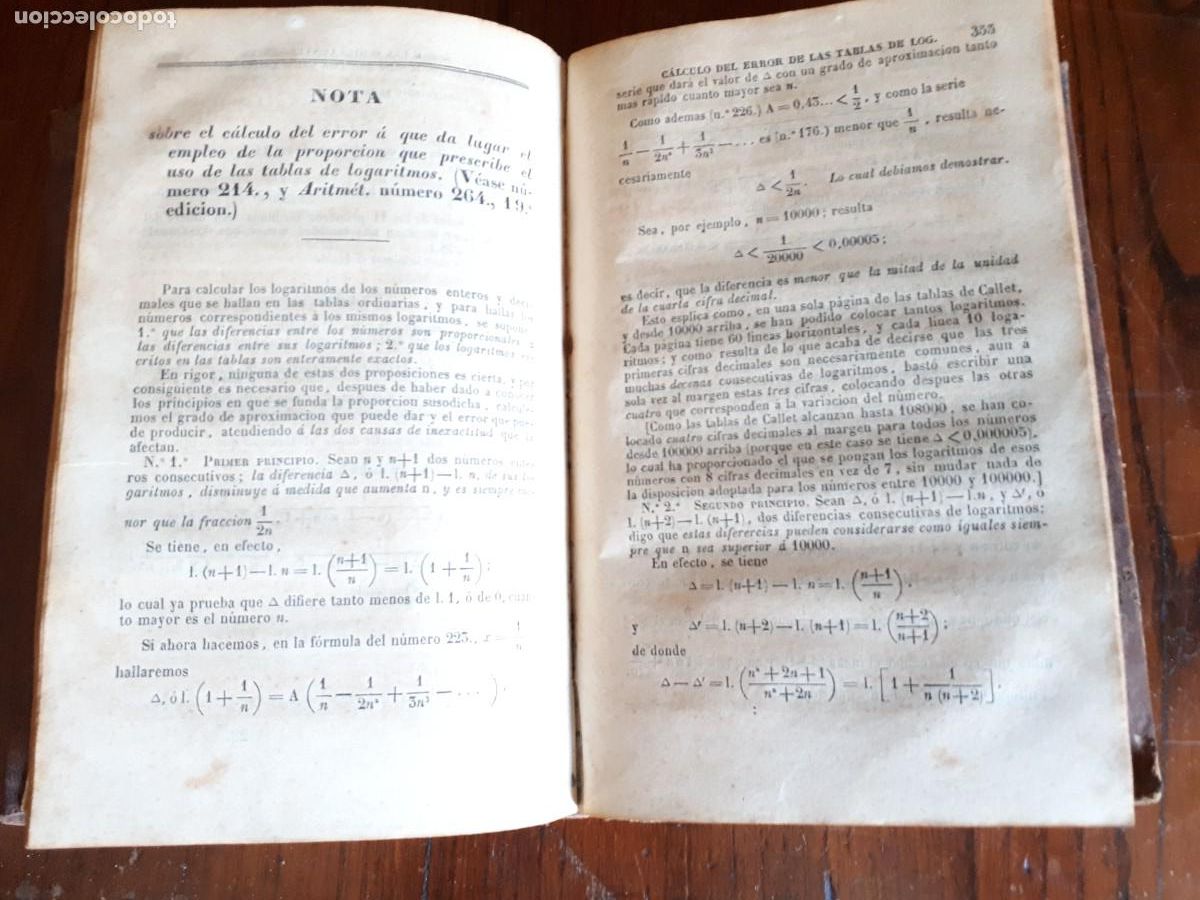 todocoleccion
NOTA
sobre el cálculo del error á que da lugar el
empleo de la proporcion que prescribe el
uso de las tablas de logaritmos. (Véase nú-
mero 214., y Aritmét. número 264., 19.ª
edicion.)
Para calcular los logaritmos de los números enteros y deci-
males que se hallan en las tablas ordinarias, y para hallar los
números correspondientes à los mismos logaritmos, se supone
1.º que las diferencias entre los números son proporcionales á
las diferencias entre sus logaritmos; 2.º que los logaritmos es-
critos en las tablas son enteramente exactos.
En rigor, ninguna de estas dos proposiciones es cierta, y por
consiguiente es necesario que, despues de haber dado a conocer
los principios en que se funda la proporcion susodicha, calcule-
mos el grado de aproximacion que puede dar y el error que pue-
de producir, atendiendo á las dos causas de inexactitud que la
afectan.
N.º 1.º PRIMER PRINCIPIO. Sean n y n+1 dos números ente-
ros consecutivos; la diferencia Δ, ó l. (n+1)—l. n, de sus lo-
garitmos, disminuye á medida que aumenta n, y es siempre me-
nor que la fraccion 1/2n.
Se tiene, en efecto,
l. (n+1)—l. n = l. (n+1/n) = l. (1+1/n);
lo cual ya prueba que Δ difiere tanto menos de l. 1, ó de 0, cuan-
to mayor es el número n.
Si ahora hacemos, en la fórmula del número 225., x = 1/n
hallaremos
Δ, ó l. (1+1/n) = A (1/n — 1/2n² + 1/3n³ — ... ).
CÁLCULO DEL ERROR DE LAS TABLAS DE LOG. 353
serie que dará el valor de Δ con un grado de aproximacion tanto
mas rápido cuanto mayor sea n.
Como ademas (n.º 226.) A = 0,43... < 1/2, y como la serie
1/n — 1/2n² + 1/3n³ — ... es (n.º 176.) menor que 1/n, resulta ne-
cesariamente
Δ < 1/2n. Lo cual debiamos demostrar.
Sea, por ejemplo, n = 10000; resulta
Δ < 1/20000 < 0,00005;
es decir, que la diferencia es menor que la mitad de la unidad
de la cuarta cifra decimal.
Esto esplica como, en una sola página de las tablas de Callet,
y desde 10000 arriba, se han podido colocar tantos logaritmos.
Cada página tiene 60 lineas horizontales, y cada linea 10 loga-
ritmos; y como resulta de lo que acaba de decirse que las tres
primeras cifras decimales son necesariamente comunes, aun á
muchas decenas consecutivas de logaritmos, bastó escribir una
sola vez al margen estas tres cifras, colocando despues las otras
cuatro que corresponden á la variacion del número.
[Como las tablas de Callet alcanzan hasta 108000, se han co-
locado cuatro cifras decimales al margen para todos los números
desde 100000 arriba (porque en este caso se tiene Δ < 0,000005),
lo cual ha proporcionado el que se pongan los logaritmos de esos
números con 8 cifras decimales en vez de 7, sin mudar nada de
la disposicion adoptada para los números entre 10000 y 100000.]
N.º 2.º SEGUNDO PRINCIPIO. Sean Δ, ó l. (n+1)—l.n, y Δ', ó
l. (n+2)—l. (n+1), dos diferencias consecutivas de logaritmos;
digo que estas diferencias pueden considerarse como iguales siem-
pre que n sea superior á 10000.
En efecto, se tiene
Δ = l. (n+1)—l. n = l. (n+1/n),
y Δ' = l. (n+2)—l. (n+1) = l. (n+2/n+1);
de donde
Δ—Δ' = l. (n²+2n+1/n²+2n) = l. [1 + 1/n (n+2)].